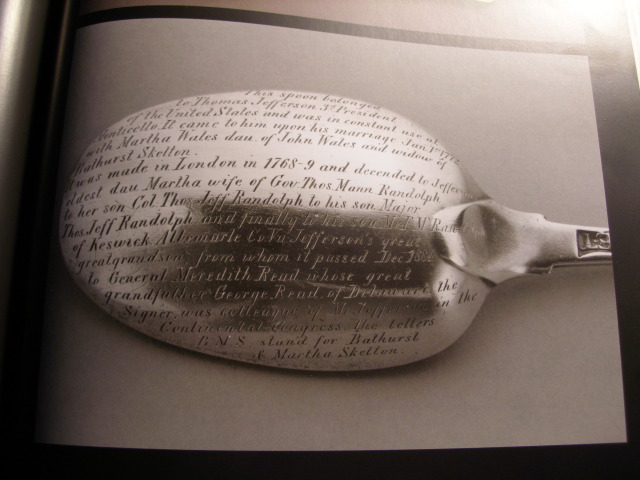 This spoon belonged
to Thomas Jefferson 3d President
of the United States and was in constant use at
Monticello. It came to him upon his marriage Jan. 1st 1772
with Martha Wales dau. of John Wales and widow of
Bathurst Skelton.
It was made in London in 1768-9 and decended to Jefferson's
eldest dau Martha wife of Gov. Thos. Mann Randolph
to her son Col. Thos. Jeff Randolph to his son Major
Thos. Jeff Randolph and finally to his son
of Keswick Albemarle Co. Va. Jefferson's great
greatgrandson, from whom it passed Dec.
to General Meredith Read whose great
grandfather George Read, of Delaware, the
Signer, was colleague of Mr Jefferson in the
Continental Congress. The letters
B M S stand for Bathurst
& Martha Skelton.